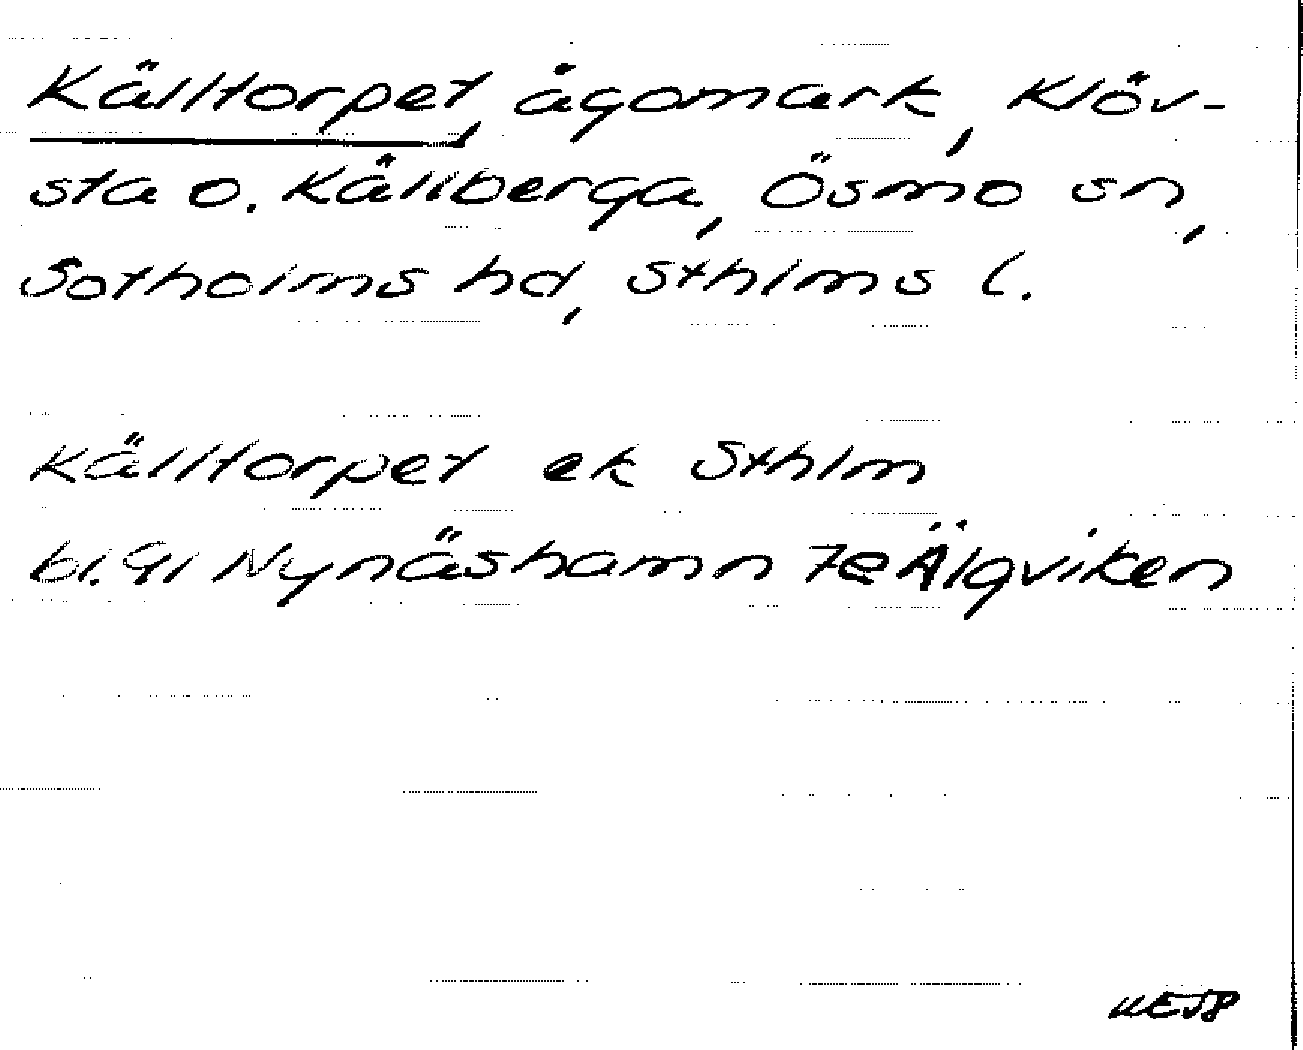 Källtorpet, ägomark, Klöv-
sta o. Källberga, Ösmo sn,
Sotholms hd, Sthlms l.
Källtorpet ek Sthlm
bl. 91 Nynäshamn 7e Älgviken